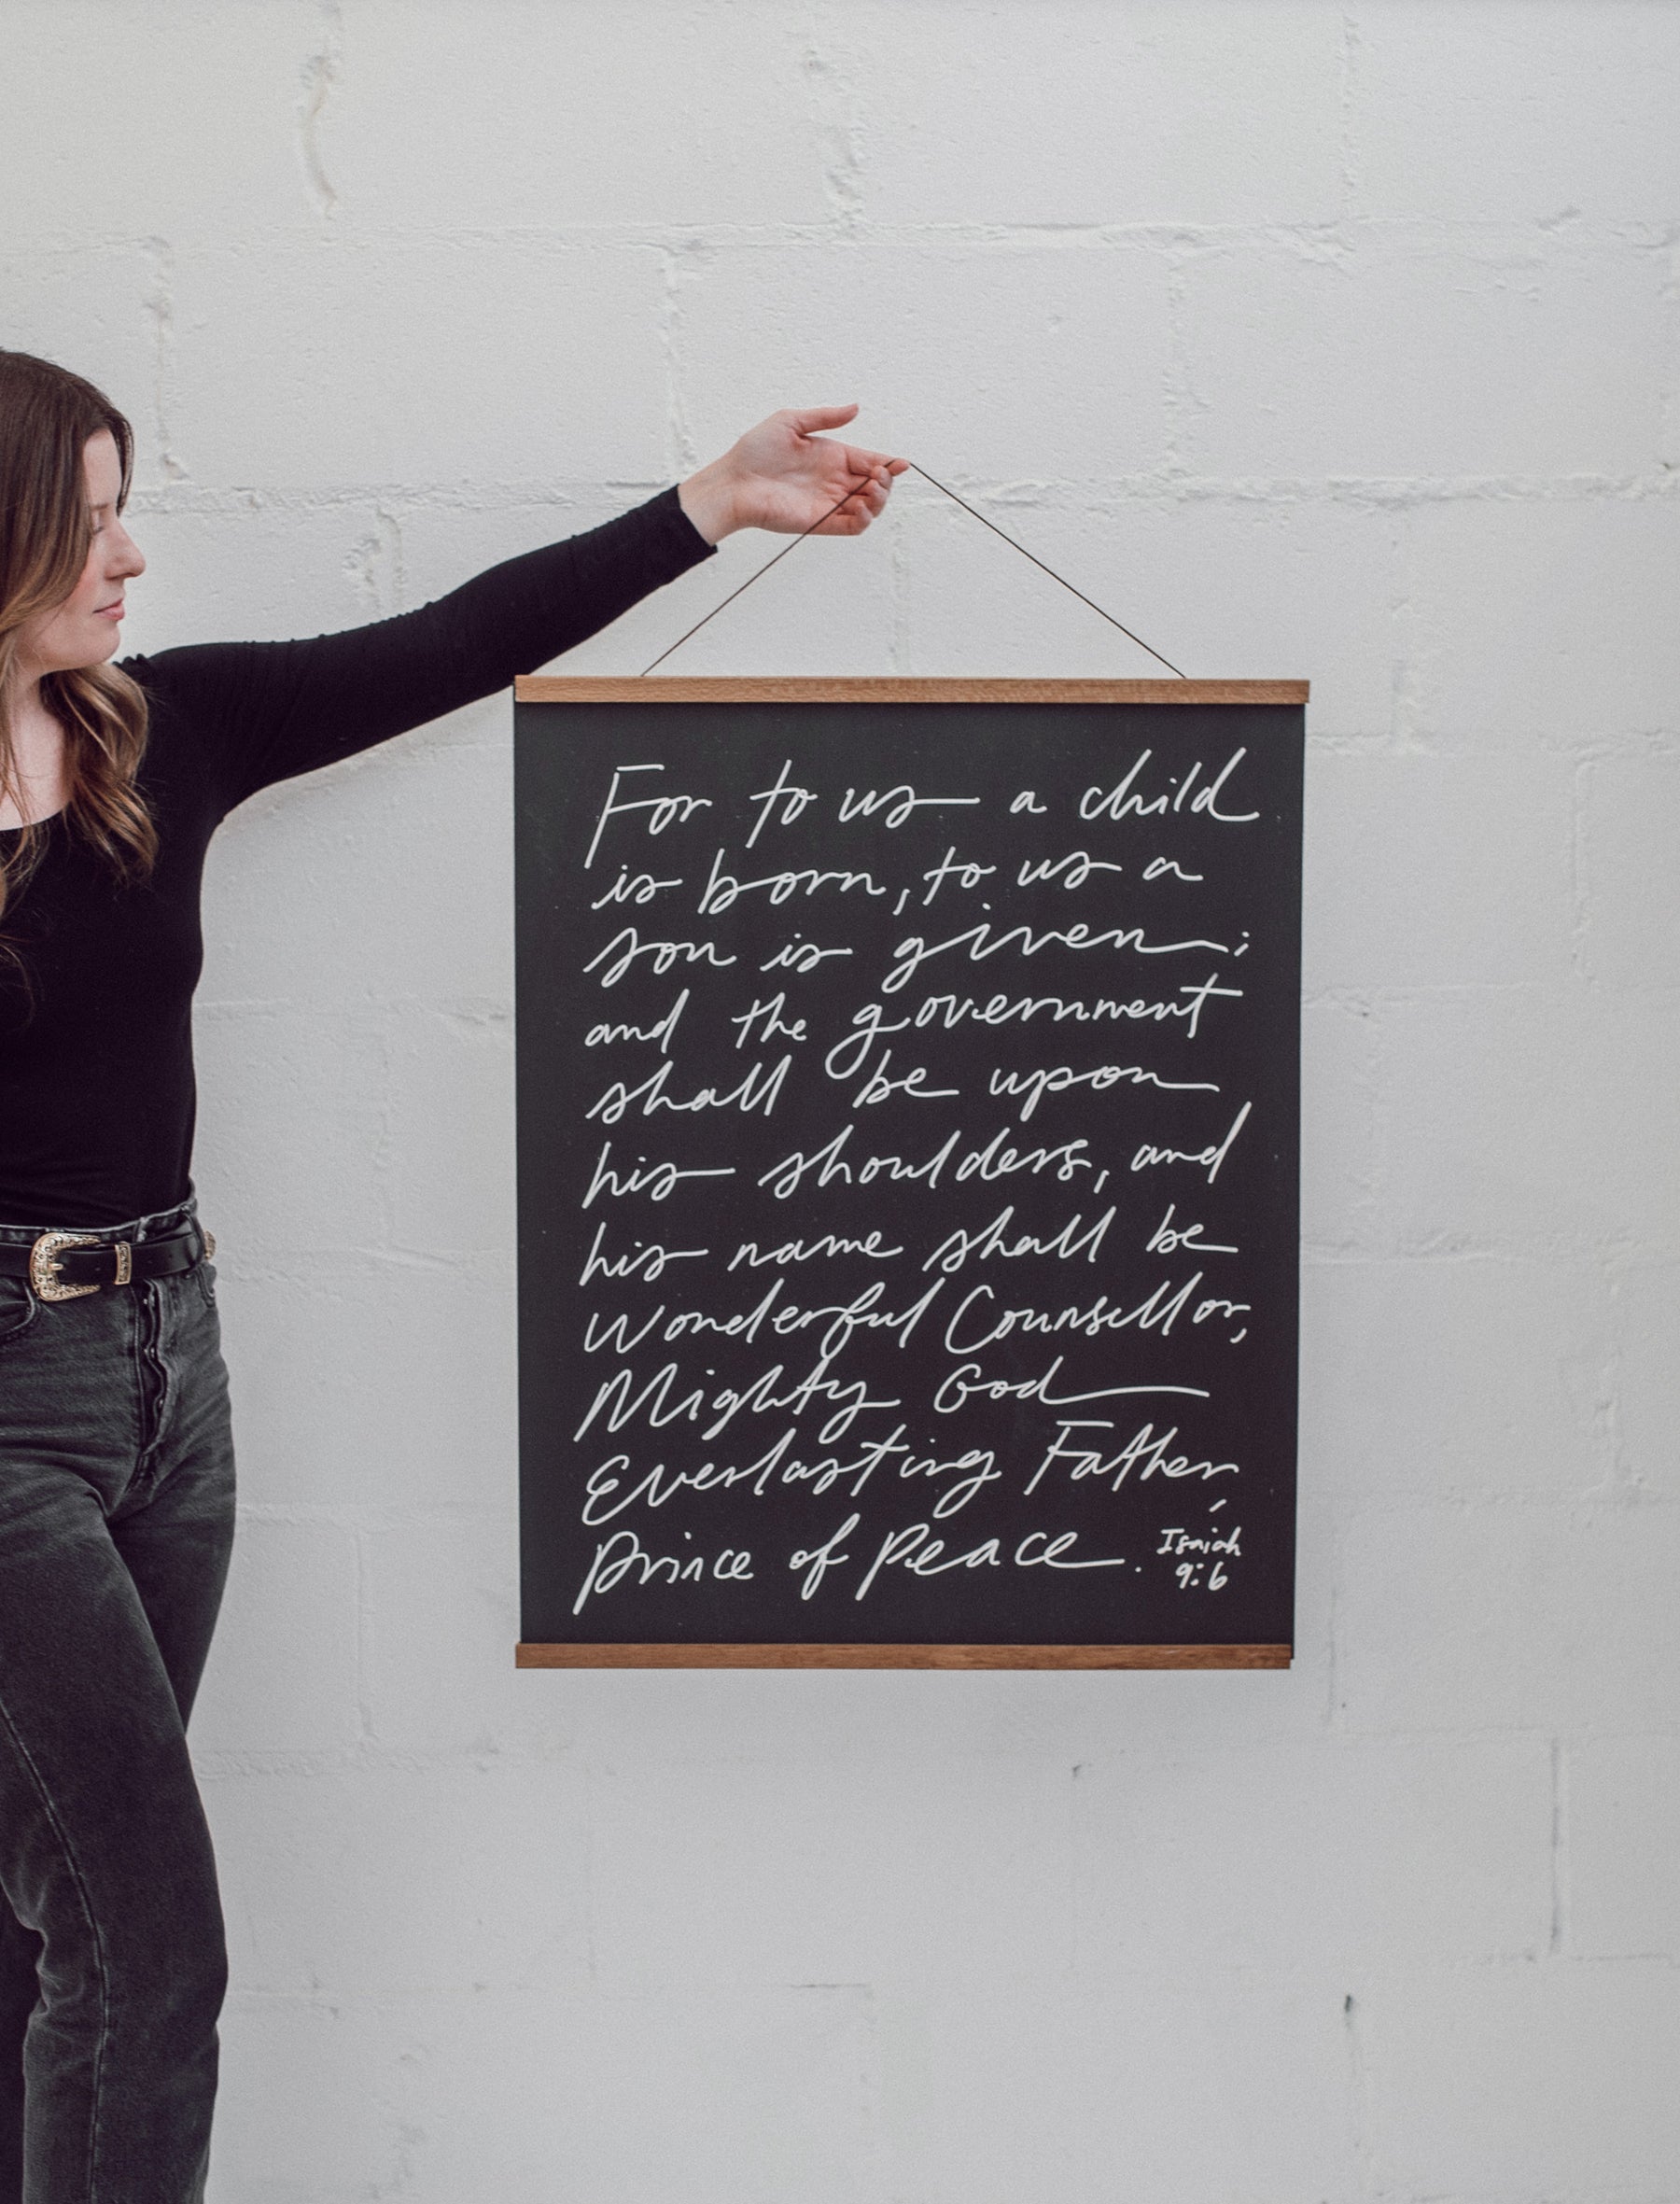 For to us a child
is born, to us a
son is given;
and the government
shall be upon
his shoulders, and
his name shall be
Wonderful Counsellor,
Mighty God
Everlasting Father,
Prince of Peace.
Isaiah
9:6